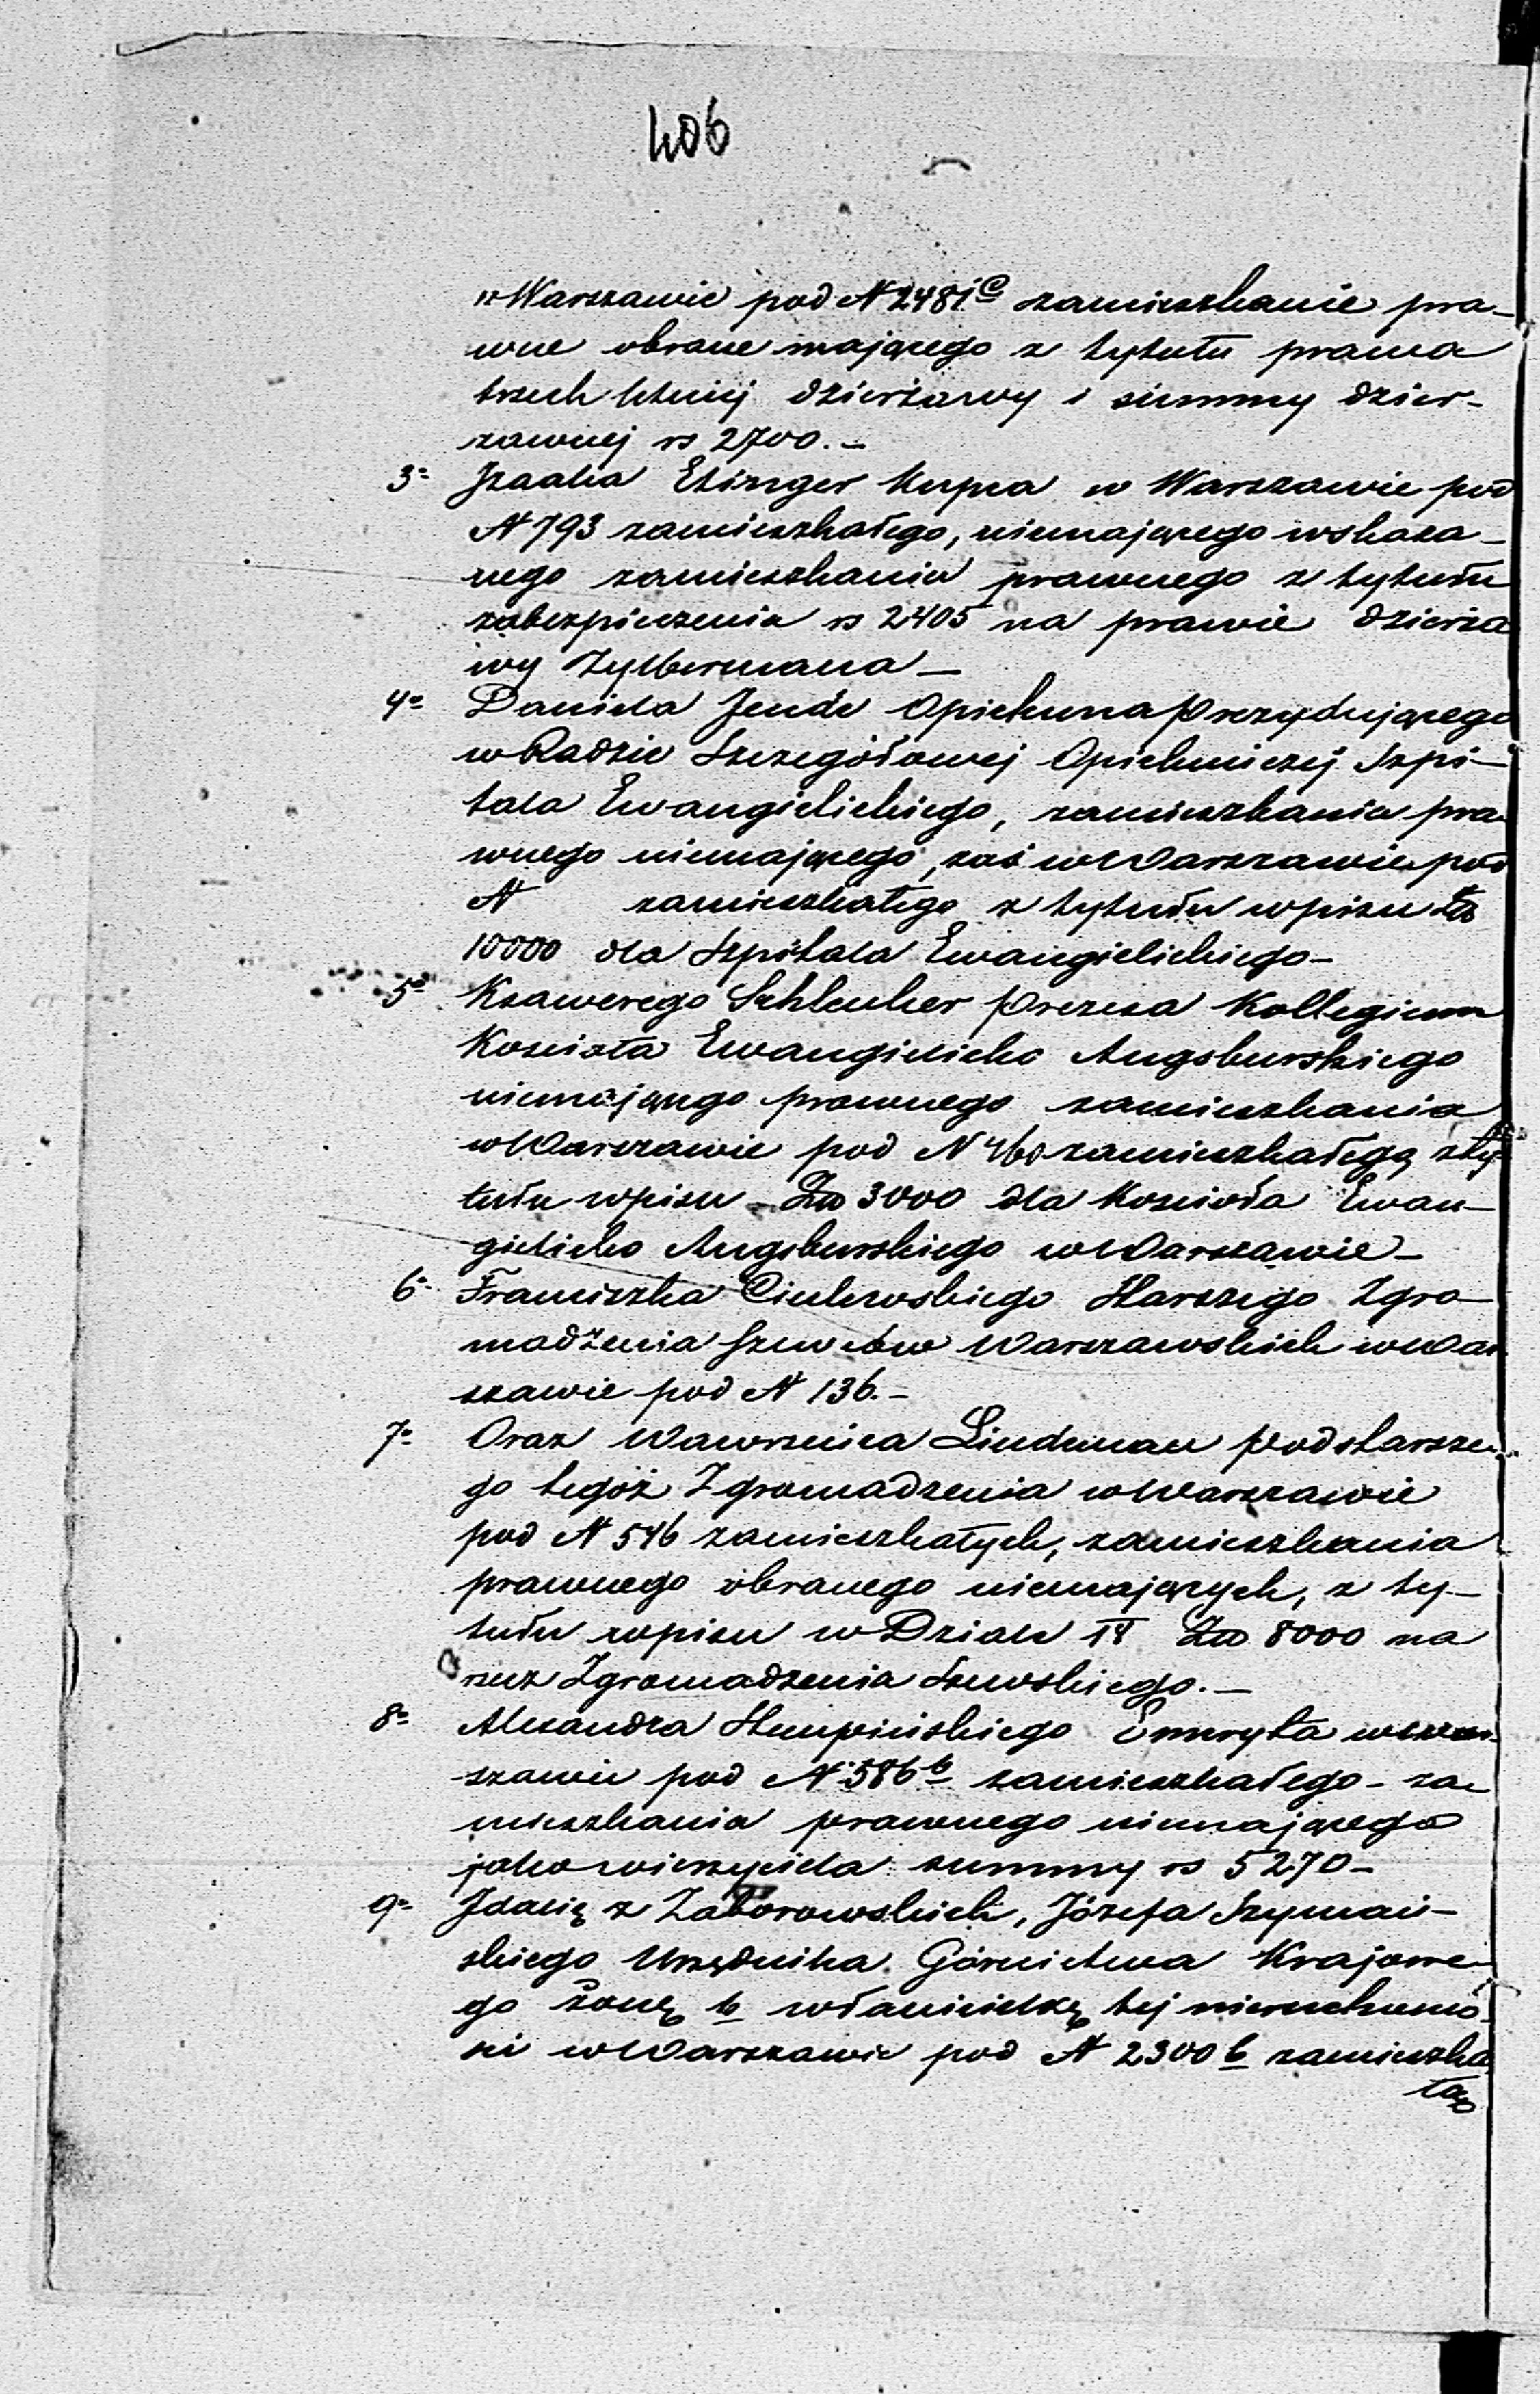 406
w Warszawie pod N 2481 C zamieszkanie pra-
wne obrane mającego z tytułu prawa
trzech letniej dzierżawy i summy dzier-
żawnej rs 2700.-
3o Izaaka Etinger Kupca w Warszawie pod
N 793 zamieszkałego, niemającego wskaza-
nego zamieszkania prawnego z tytułu
zabezpieczenia rs 2405 na prawie dzierża
wy Zylbermana -
4o Daniela Jende Opiekuna Prezydującego
w Radzie Szczegółowej Opiekuńczej Szpi-
tala Ewangielickiego, zamieszkania pra-
wnego niemającego, zaś w Warszawie pod
N zamieszkałego z tytułu wpisu Zł
10000 dla Szpitala Ewangielickiego-
5o Ksawerego Schlenker Prezesa Kollegium
Kościoła Ewangielicko Augsburskiego
niemającego prawnego zamieszkania
w Warszawie pod N 460 zamieszkałego z ty
tułu wpisu Zło 3000 dla Kościoła Ewan-
gielicko Augsburskiego w Warszawie -
6o Franciszka Starszego Zgro-
madzenia Szewców Warszawskich w War
szawie pod N 136.-
7o Oraz Wawrzeńca Lindeman Podstarsze-
go tegóż Zgromadzenia w Warszawie
pod N 546 zamieszkałych, zamieszkania
prawnego obranego niemających, z ty-
tułu wpisu w Dziale IV Zło 8000 na
rzecz Zgromadzenia Szewskiego.-
8o Alexandra Słupińskiego Emeryta w War-
szawie pod N 586 b zamieszkałego - za-
mieszkania prawnego niemającego
jako wierzyciela summy rs 5270-
9o Idalię z Zaborowskich, Józefa Szymań-
skiego Urzędnika Górnictwa Krajowe-
go żonę b właścicielkę tej nieruchomo-
ści w Warszawie pod N 2300 b zamieszka
łą